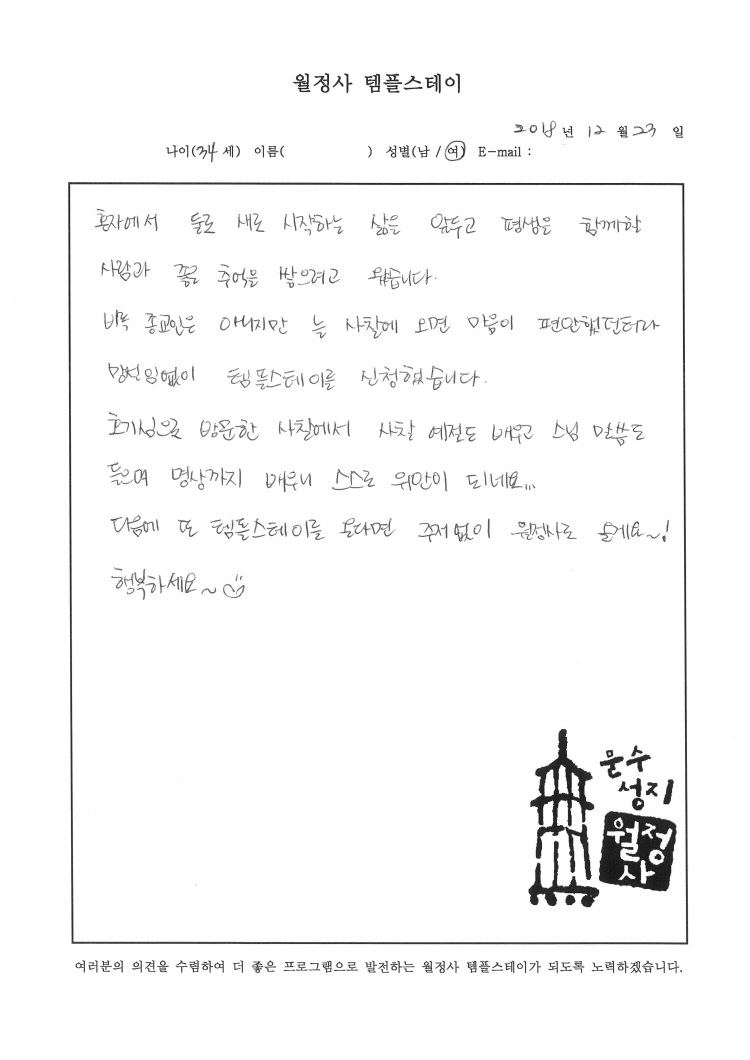 월정사 템플스테이
2018 년 12 월 23 일
나이(34 세) 이름( ) 성별(남 / 여) E-mail :
혼자에서 둘로 새로 시작하는 삶을 앞두고 평생을 함께할
사람과 좋은 추억을 쌓으려고 왔습니다.
비록 종교인은 아니지만 늘 사찰에 오면 마음이 편안했던터라
망설임없이 템플스테이를 신청했습니다.
호기심으로 방문한 사찰에서 사찰 예절도 배우고 스님 말씀도
들으며 명상까지 배우니 스스로 위안이 되네요...
다음에 또 템플스테이를 온다면 주저없이 월정사로 올게요~!
행복하세요~
문수
성지
월정
사
여러분의 의견을 수렴하여 더 좋은 프로그램으로 발전하는 월정사 템플스테이가 되도록 노력하겠습니다.